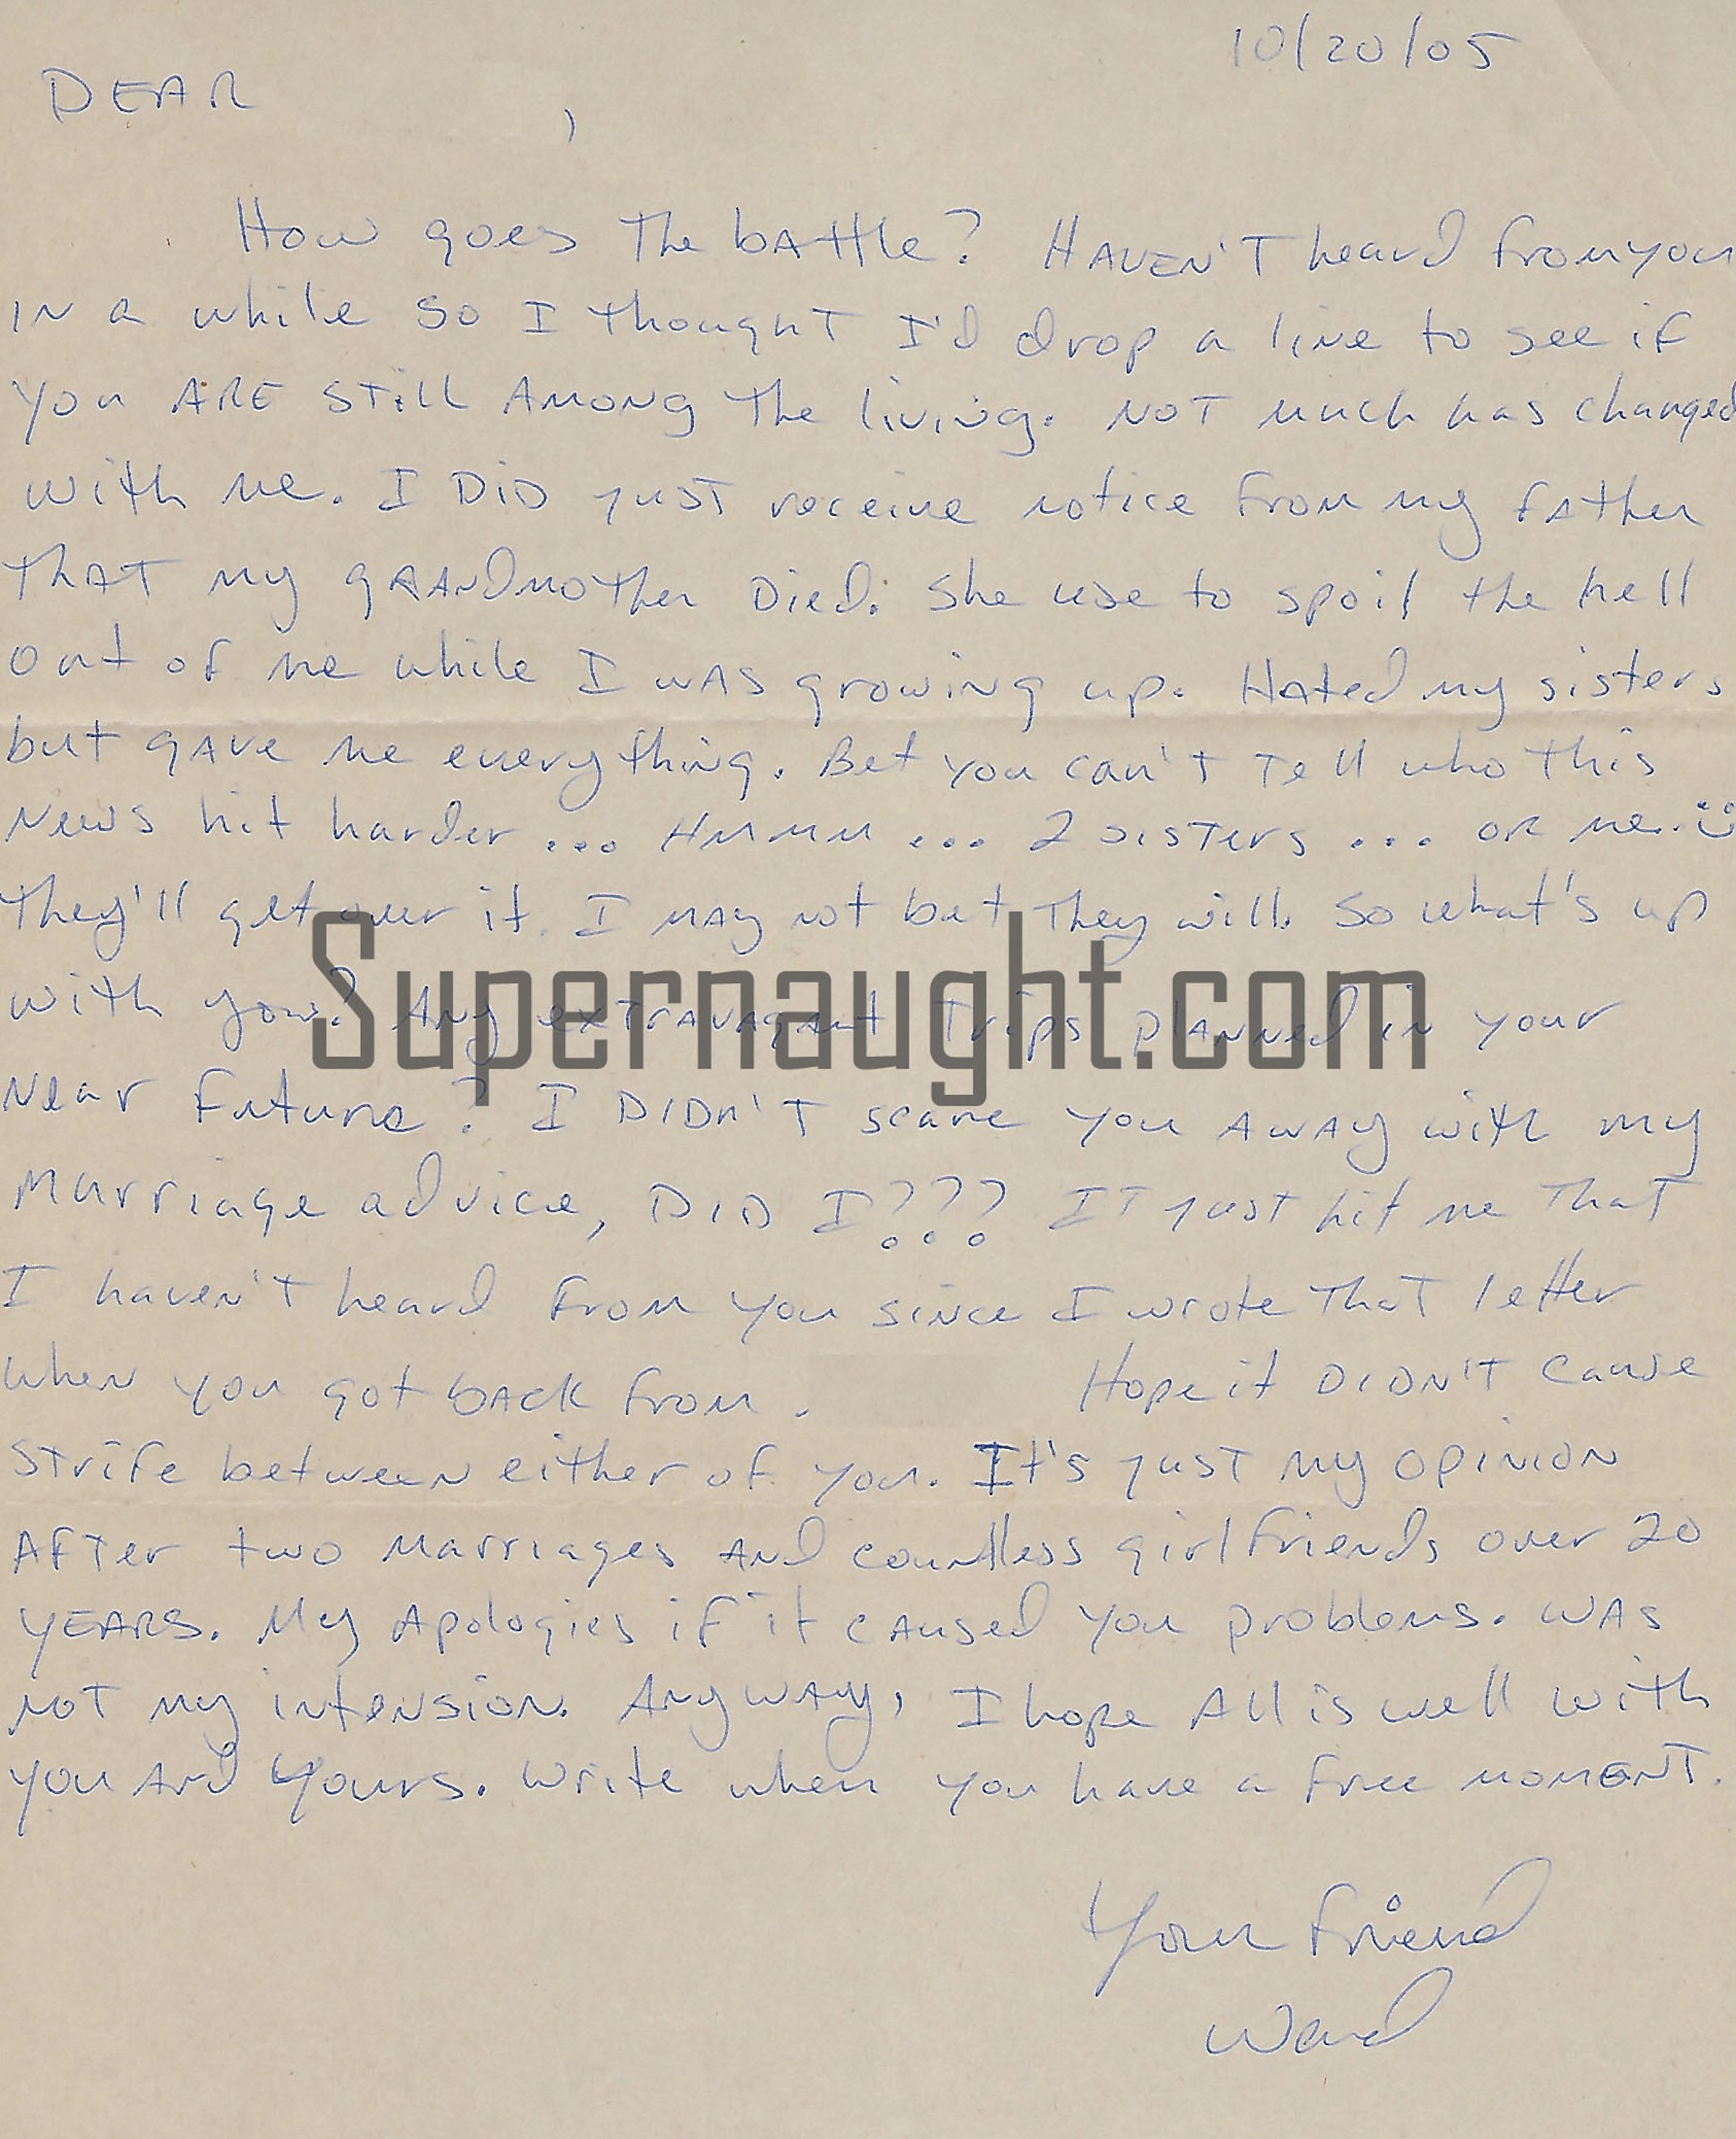 10/20/05
DEAR ,
How goes The bAttle? HAVEN'T heard from you
IN a while so I thought I'd drop a line to see if
you ARE STill AMONg The living. NOT much has changed
with me. I DiD just receive notice from my fAther
ThAT my gRANdmother Died. She use to spoil the hell
out of me while I wAs growing up. HAted my sisters
but gAve me everything. Bet you can't Tell who This
News hit harder ... Hmmmm ... 2 sisters ... or me. :)
They'll get over it. I mAy not but They will. So what's up
with you? Any exTrAvAgant Trips plANNed in your
Near future? I DIDN'T scare you AwAy with my
Marriage advice, DID I??? IT just hit me That
I haven't heard from you since I wrote ThaT letter
When you got bAck from . Hope it DIDN'T cause
STrife between either of you. It's just my opinion
AfTer two Marriages And countless girlfriends over 20
YEARS. My Apologies if it cAused you problems. WAs
not my intension. AnywAy, I hope All is well with
you And yours. Write when you have a free momENT.
Your friend
Ward
Supernaught.com